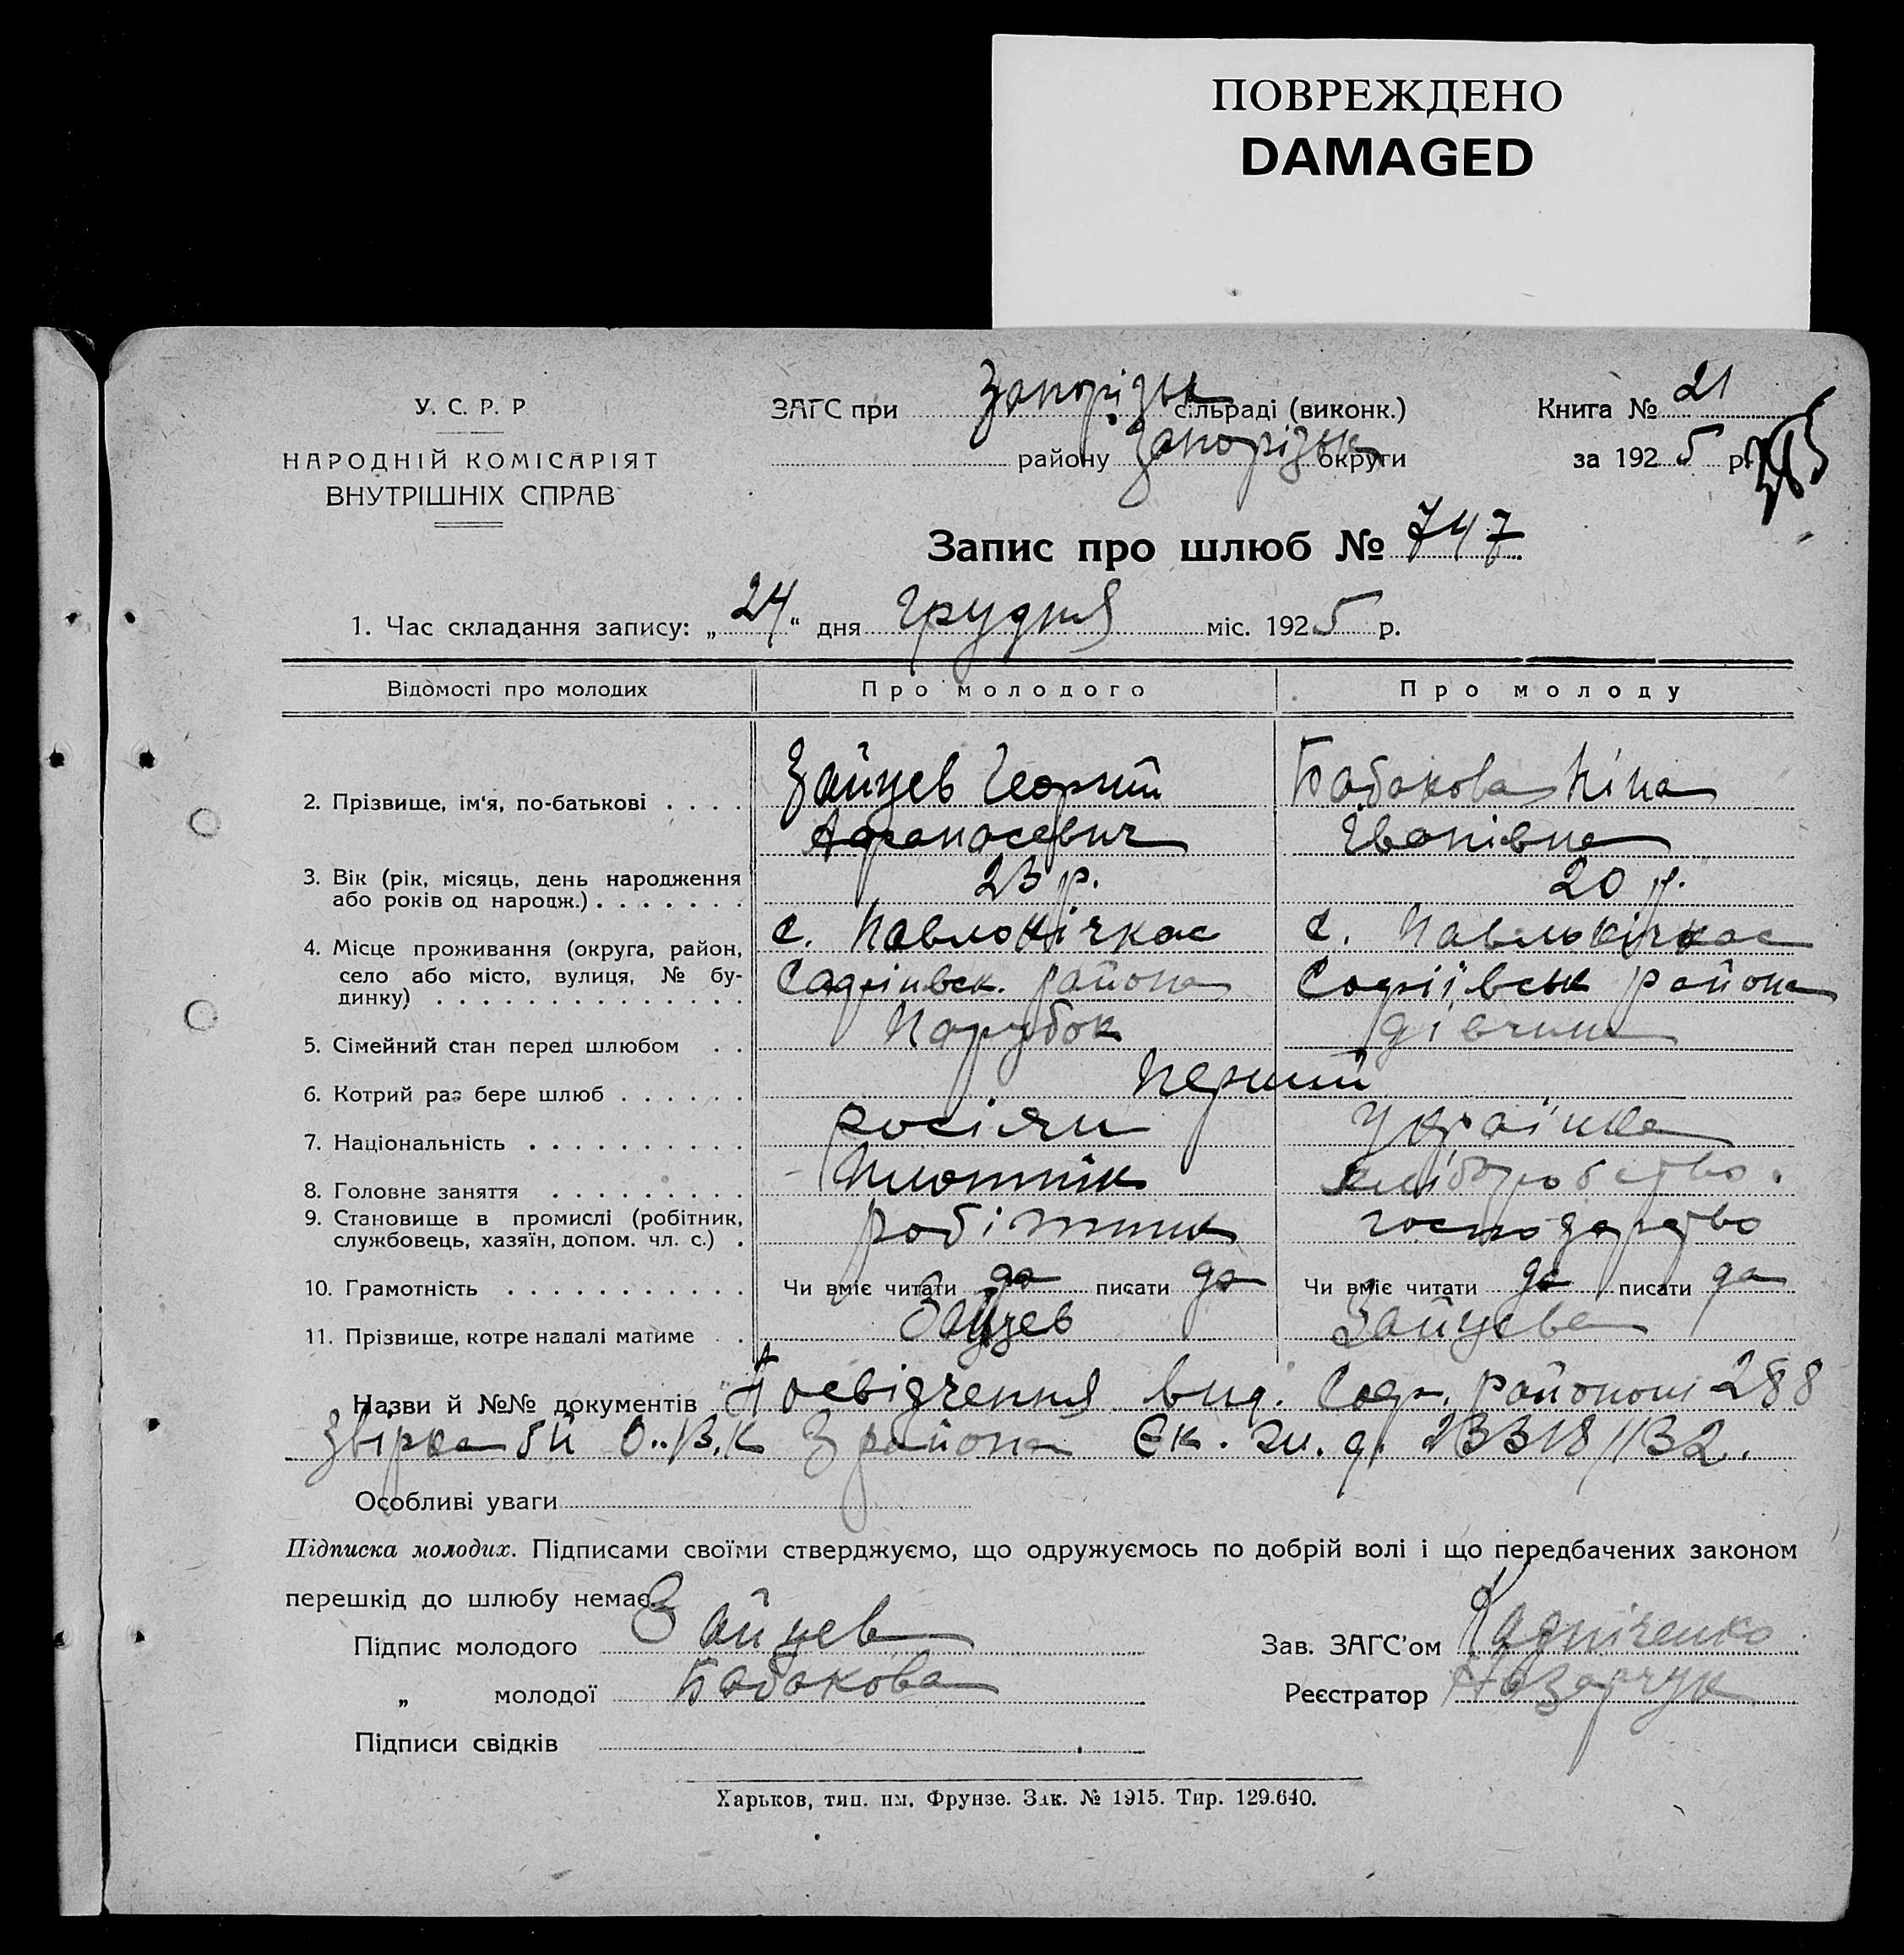 ПОВРЕЖДЕНО
DAMAGED
У. С. Р. Р
НАРОДНІЙ КОМІСАРІЯТ
ВНУТРІШНІХ СПРАВ
ЗАГС при Запорізьк сільраді (виконк.)
району Запорізьк округи
Книга № 21
за 1925 р.
Запис про шлюб № 747
1. Час складання запису: „24" дня грудня міс. 1925 р.
Відомості про молодих Про молодого Про молоду
2. Прізвище, ім'я, по-батькові . . . . Зайцев Георгий Бабакова Ніна
Афанасевич Іванівна
3. Вік (рік, місяць, день народження
або років од народж.) . . . . . . . 23 р. 20 р.
4. Місце проживання (округа, район, с. Павлокічкас с. Павлокічкас
село або місто, вулиця, № бу-
динку) . . . . . . . . . . . . . . района Софіївськ района
5. Сімейний стан перед шлюбом . . Парубок дівчина
6. Котрий раз бере шлюб . . . . . . перший
7. Національність . . . . . . . . . . росіян Українка
8. Головне заняття . . . . . . . . . Плотнік хліборобство.
9. Становище в промислі (робітник,
службовець, хазяїн, допом. чл. с.) . робітник господарство
10. Грамотність . . . . . . . . . . . Чи вміє читати да писати да Чи вміє читати да писати да
11. Прізвище, котре надалі матиме . . Зайцев Зайцева
Назви й №№ документів Посвідчення вид. Соф. районом 288
Звірка О.В.К 3 района
Особливі уваги
Підписка молодих. Підписами своїми стверджуємо, що одружуємось по добрій волі і що передбачених законом
перешкід до шлюбу немає.
Підпис молодого Зайцев
„ молодої Бабакова
Підписи свідків
Зав. ЗАГС'ом
Реєстратор Назарчук
Харьков, тип. им. Фрунзе. Зак. № 1915. Тир. 129.640.